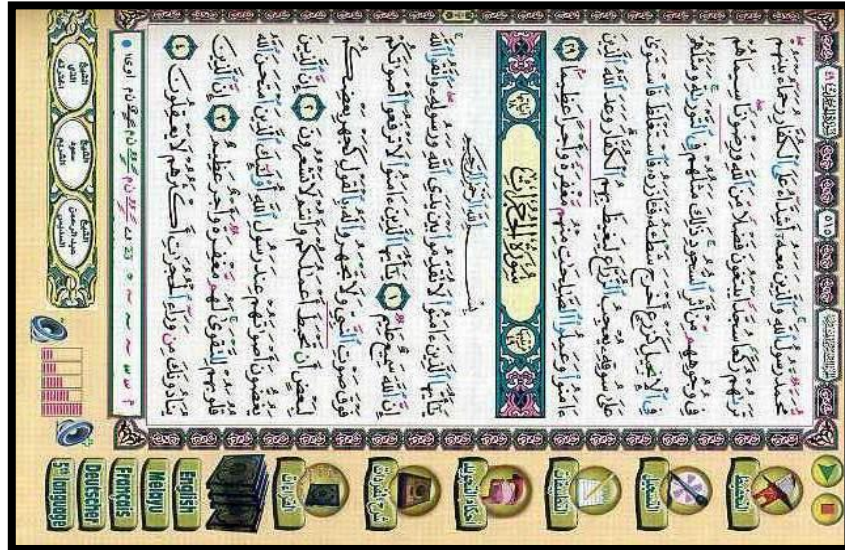 ٥١٥
مُّحَمَّدٌ رَّسُولُ ٱللَّهِ وَٱلَّذِينَ مَعَهُۥٓ أَشِدَّآءُ عَلَى ٱلْكُفَّارِ رُحَمَآءُ بَيْنَهُمْ
تَرَىٰهُمْ رُكَّعًا سُجَّدًا يَبْتَغُونَ فَضْلًا مِّنَ ٱللَّهِ وَرِضْوَٰنًا سِيمَاهُمْ
فِى وُجُوهِهِم مِّنْ أَثَرِ ٱلسُّجُودِ ذَٰلِكَ مَثَلُهُمْ فِى ٱلتَّوْرَىٰةِ وَمَثَلُهُمْ
فِى ٱلْإِنجِيلِ كَزَرْعٍ أَخْرَجَ شَطْـَٔهُۥ فَـَٔازَرَهُۥ فَٱسْتَغْلَظَ فَٱسْتَوَىٰ
عَلَىٰ سُوقِهِۦ يُعْجِبُ ٱلزُّرَّاعَ لِيَغِيظَ بِهِمُ ٱلْكُفَّارَ وَعَدَ ٱللَّهُ ٱلَّذِينَ
ءَامَنُوا۟ وَعَمِلُوا۟ ٱلصَّٰلِحَٰتِ مِنْهُم مَّغْفِرَةً وَأَجْرًا عَظِيمًۢا ٢٩
سُورَةُ الحُجُرَاتِ
بِسْمِ ٱللَّهِ ٱلرَّحْمَٰنِ ٱلرَّحِيمِ
يَٰٓأَيُّهَا ٱلَّذِينَ ءَامَنُوا۟ لَا تُقَدِّمُوا۟ بَيْنَ يَدَىِ ٱللَّهِ وَرَسُولِهِۦ وَٱتَّقُوا۟ ٱللَّهَ
إِنَّ ٱللَّهَ سَمِيعٌ عَلِيمٌ ١ يَٰٓأَيُّهَا ٱلَّذِينَ ءَامَنُوا۟ لَا تَرْفَعُوٓا۟ أَصْوَٰتَكُمْ
فَوْقَ صَوْتِ ٱلنَّبِىِّ وَلَا تَجْهَرُوا۟ لَهُۥ بِٱلْقَوْلِ كَجَهْرِ بَعْضِكُمْ
لِبَعْضٍ أَن تَحْبَطَ أَعْمَٰلُكُمْ وَأَنتُمْ لَا تَشْعُرُونَ ٢ إِنَّ ٱلَّذِينَ
يَغُضُّونَ أَصْوَٰتَهُمْ عِندَ رَسُولِ ٱللَّهِ أُو۟لَٰٓئِكَ ٱلَّذِينَ ٱمْتَحَنَ ٱللَّهُ
قُلُوبَهُمْ لِلتَّقْوَىٰ لَهُم مَّغْفِرَةٌ وَأَجْرٌ عَظِيمٌ ٣ إِنَّ ٱلَّذِينَ
يُنَادُونَكَ مِن وَرَآءِ ٱلْحُجُرَٰتِ أَكْثَرُهُمْ لَا يَعْقِلُونَ ٤
الشيخ عبد الرحمن السديس
الشيخ سعود الشريم
الشيخ
التحفيظ
التسجيل
أحكام التجويد
English
Melayu
Français
Deutscher
language